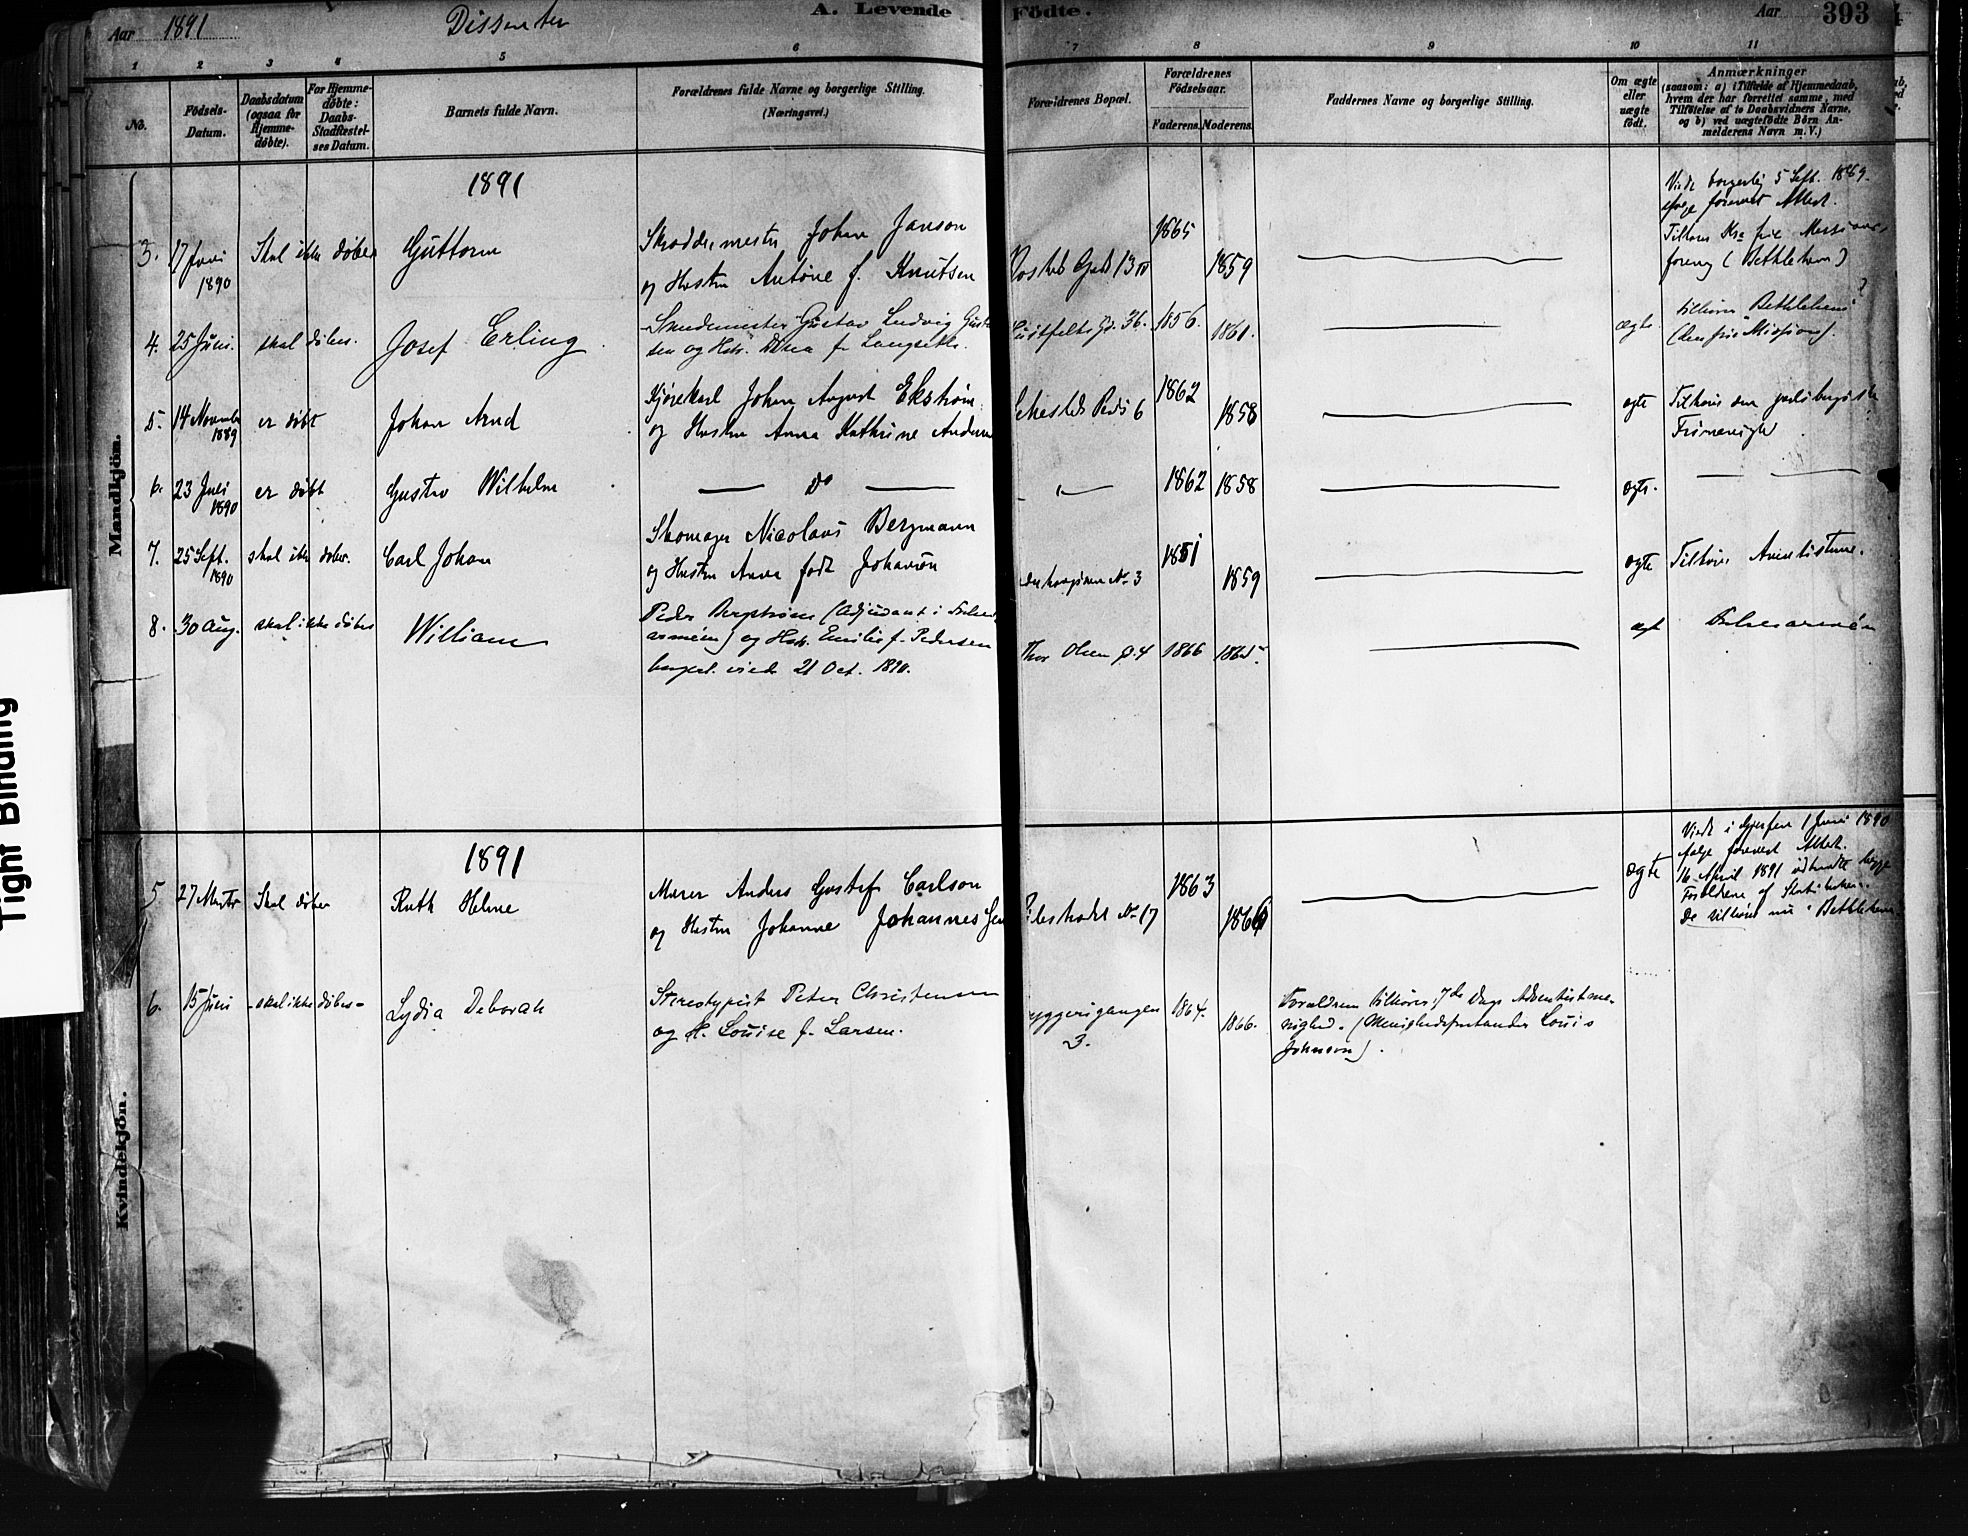 Aar 1891 Dissenter A. Levende Födte. Aar 393
1 2 3 4 5 6 7 8 9 10 11
No.
Födsels-Datum.
Daabsdatum (ogsaa for Hjemme-døbte).
For Hjemme-døbte: Daabs-Stadfæstel-ses Datum.
Barnets fulde Navn.
Forældrenes fulde Navne og borgerlige Stilling.
(Næringsvei.)
Forældrenes Bopæl.
Forældrenes Födselsaar.
Faderens. Moderens.
Faddernes Navne og borgerlige Stilling.
Om ægte eller uægte födt.
Anmærkninger
(saasom: a) i Tilfælde af Hjemmedaab,
hvem der har forrettet samme, med
Tilföielse af to Daabsvidners Navne,
og b) ved uægtefödte Börn An-
melderens Navn m. V.)
Mandkjön.
1891
Viede borgerlig 5 Sept. 1889.
ifølge forevist Attest.
3. 17 Juni 1890 Skal ikke døbes Guttorm
Skreddermester Johan Janson
og Hustru Antone f. Knutsen
Gade 13 1865 1859
Tilhører Kra frie Missions
forening (Bethlehem)
4. 25 Juni. skal døbes. Josef Erling.
Gustav Ludvig
sen og Hstr. f. Langseth.
36. 1856. 1861. ægte.
tilhører "Bethlehem"
(den frie Mission).
5. 14 November 1889 er døbt Johan Arnd
Kjørekarl Johan August Ekstrøm
og Hustru Anna Kathrine
6 1862 1858 ægte
Tilhører den
Frimenighed
6. 23 Juli 1890 er døbt Gustav Wilhelm
— Do —
— " — 1862 1858 ægte. — —
7. 25 Sept. 1890 skal ikke døbes. Carl Johan
Skomager Nicolaus Bergmann
og Hustru Anna født
No 3 1851 1859 ægte Tilhører Aventisterne.
8. 30 Aug. skal ikke døbes William
Peder Bergstrøm (Adjudant i Frelses
armeen) og Hstr. Emilie f. Pedersen
borgerl. viede 21 Oct. 1890.
Thor Olsen g. 4 1866 Frelsesarmeen
Kvindekjön.
1891
Viede i Gjerpen 1 Juni 1890
ifølge forevist Attest.
16 April 1891 udtraadte begge
Forældrene af Statskirken.
De tilhører nu "Bethlehem
5 27 Marts Skal døbes Ruth Helene
Murer Anders Gustaf Carlson
og Hustru Johanne Johannesen
No 17 1863 1866 ægte
6. 15 Juni - skal ikke døbes - Lydia Deborah
Stereotypist Peter Christensen
og H. Louise f. Larsen.
yggerigangen
3.
1864. 1866.
Forældrene tilhører 7de Dags Adventistme-
nighed. (Menighedsforstander Louis
Johnson).
Tight Binding